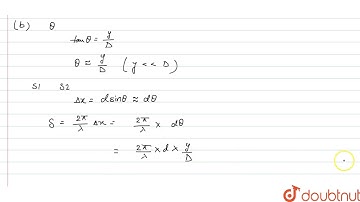 (b) θ
tanθ = y/D
θ ≈ y/D (y << D)
S1 S2
Δx = dsinθ ≈ dθ
δ = 2π/λ Δx = 2π/λ × dθ
= 2π/λ × d × y/D
doubtnut